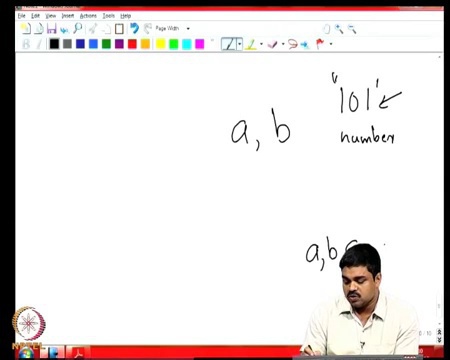 File Edit View Insert Actions Tools Help
Page Width
"101"
a, b
number
a, b
NPTEL